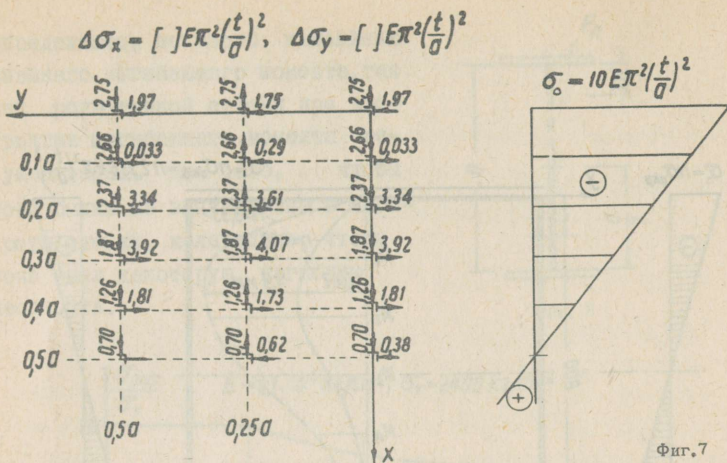 Δσx = [ ]Eπ²(t/a)², Δσy = [ ]Eπ²(t/a)²
σ₀ = 10Eπ²(t/a)²
y 2,75 1,97 2,75 1,75 2,75 1,97
0,1a 2,66 0,033 2,66 0,29 2,66 0,033
0,2a 2,37 3,34 2,37 3,61 2,37 3,34
0,3a 1,87 3,92 1,87 4,07 1,87 3,92
0,4a 1,26 1,81 1,26 1,73 1,26 1,81
0,5a 0,70 0,70 0,62 0,70 0,38
0,5a 0,25a
x
−
+
Фиг.7